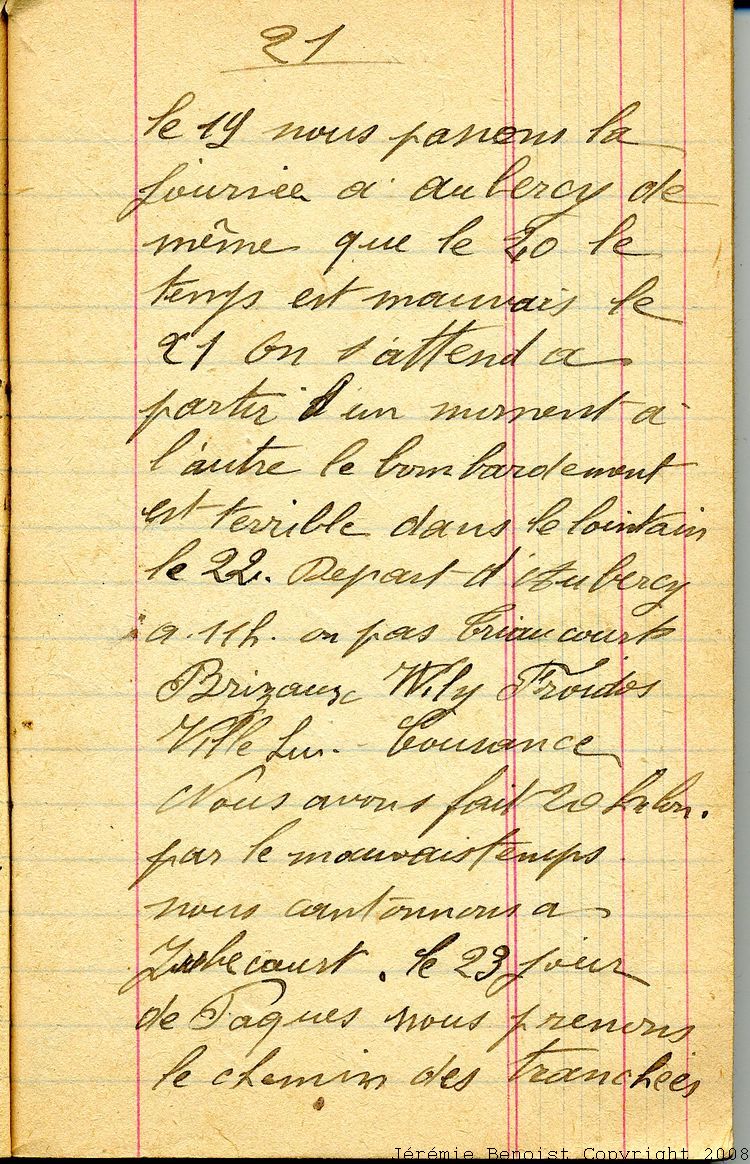 21
le 19 nous passons la
journée a aubercy de
même que le 20 le
temps est mauvais le
21 On s'attend a
partir d'un moment a
l'autre le bombardement
est terrible dans le lointain
le 22. Depart d'Aubercy
a 11h. on pas Triaucourt
Brizaux Wily Froidos
Ville Sur. Cousance
Nous avons fait 20 kilon.
par le mauvais temps.
nous cantonnons a
Jubecourt. le 23 jour
de Paques nous prenons
le chemin des tranchées
Jérémie Benoist Copyright 2008